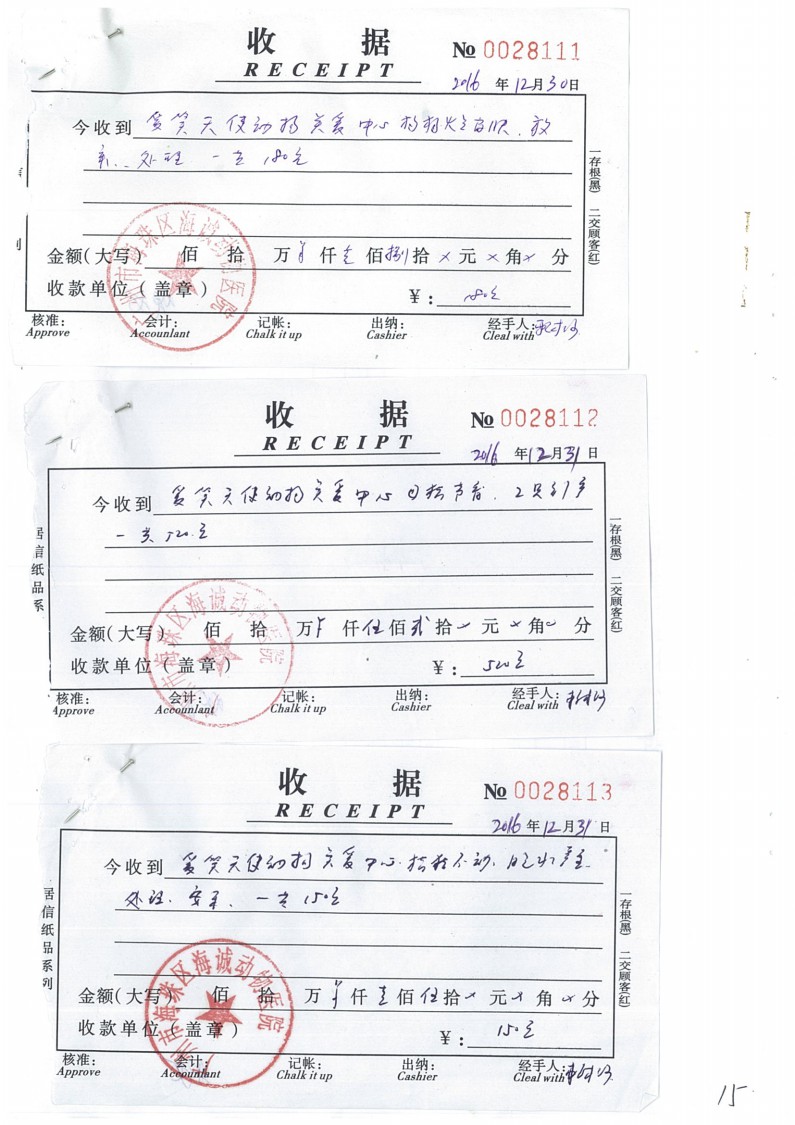 收 据
RECEIPT
№ 0028111
2016 年 12 月 30 日
今收到 爱笑天使动物关爱中心
处理 一共 180元
金额(大写) 佰 拾 万 ¥ 仟 壹 佰 捌 拾 × 元 × 角 × 分
收款单位(盖章) ¥: 180元
核准: 会计: 记帐: 出纳: 经手人:
Approve Accounlant Chalk it up Cashier Cleal with
一存根(黑) 二交顾客(红)
广州市海珠区海诚动物医院
收 据
RECEIPT
№ 0028112
2016 年 12 月 31 日
今收到 爱笑天使动物关爱中心 2只
一共 520元
金额(大写) 佰 拾 万 ¥ 仟 伍 佰 贰 拾 × 元 × 角 × 分
收款单位(盖章) ¥: 520元
核准: 会计: 记帐: 出纳: 经手人:
Approve Accounlant Chalk it up Cashier Cleal with
居信纸品系
一存根(黑) 二交顾客(红)
市海珠区海诚动物医院
收 据
RECEIPT
№ 0028113
2016 年 12 月 31 日
今收到 爱笑天使动物关爱中心
处理 一共 150元
金额(大写) 佰 拾 万 ¥ 仟 壹 佰 伍 拾 × 元 × 角 × 分
收款单位(盖章) ¥: 150元
核准: 会计: 记帐: 出纳: 经手人:
Approve Accounlant Chalk it up Cashier Cleal with
居信纸品系列
一存根(黑) 二交顾客(红)
广州市海珠区海诚动物医院
15